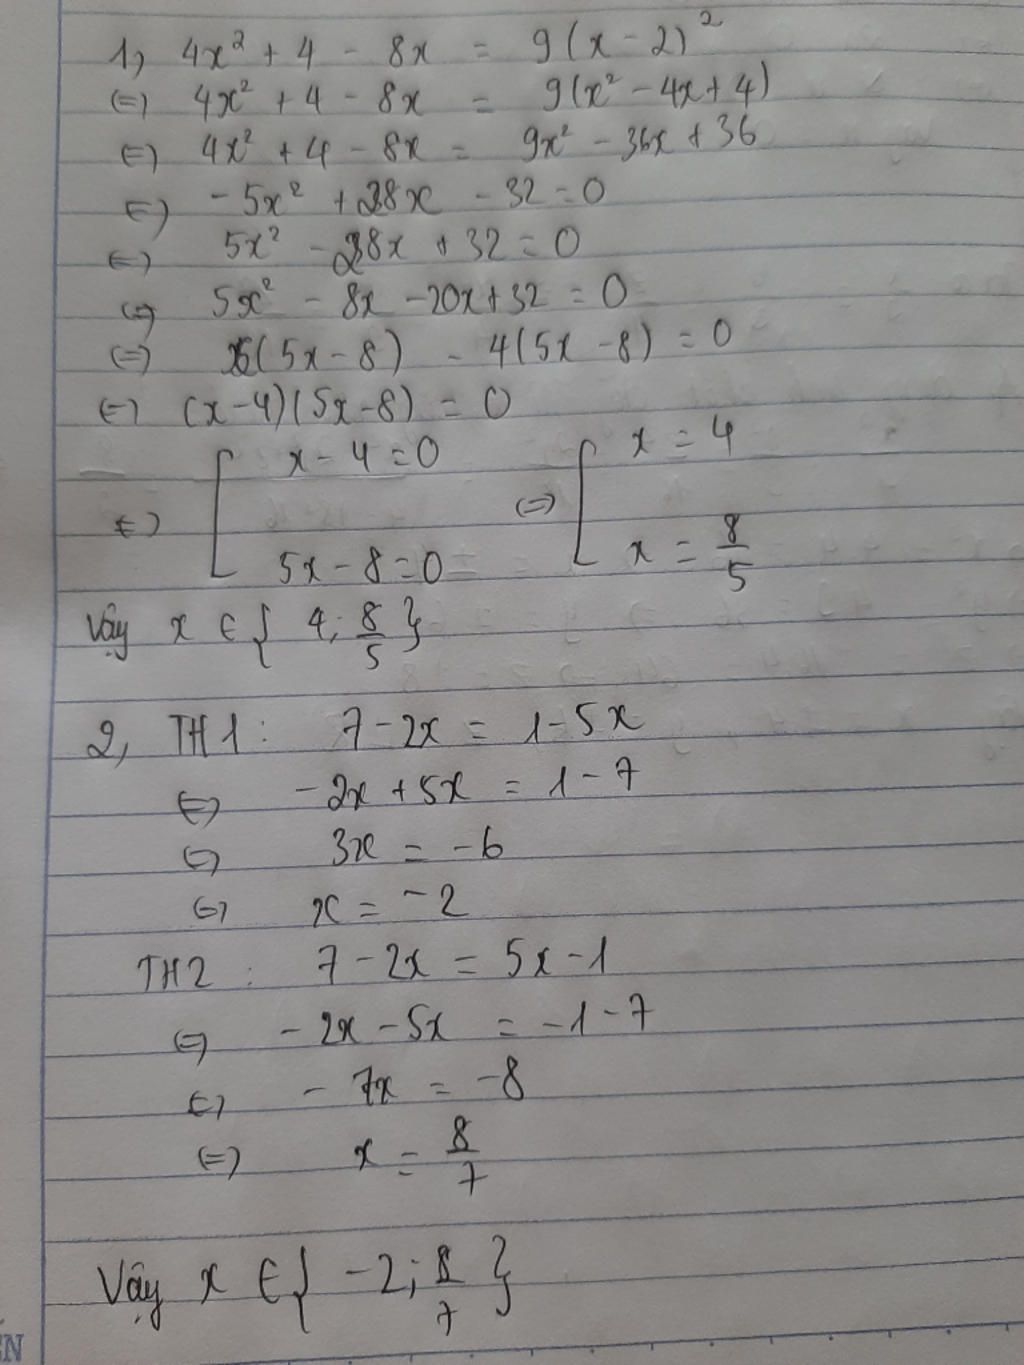 1, 4x² + 4 - 8x = 9(x - 2)²
(=) 4x² + 4 - 8x = 9(x² - 4x + 4)
(=) 4x² + 4 - 8x = 9x² - 36x + 36
(=) -5x² + 28x - 32 = 0
(=) 5x² - 28x + 32 = 0
(=) 5x² - 8x - 20x + 32 = 0
(=) x(5x - 8) - 4(5x - 8) = 0
(=) (x - 4)(5x - 8) = 0
(=) [ x - 4 = 0 (=) [ x = 4
5x - 8 = 0 x = 8/5
Vậy x ∈ { 4; 8/5 }
2, TH1: 7 - 2x = 1 - 5x
(=) -2x + 5x = 1 - 7
(=) 3x = -6
(=) x = -2
TH2: 7 - 2x = 5x - 1
(=) -2x - 5x = -1 - 7
(=) -7x = -8
(=) x = 8/7
Vậy x ∈ { -2; 8/7 }